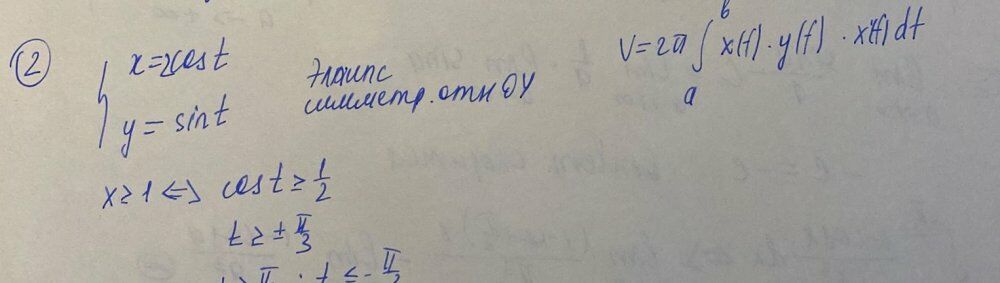 ② { x=2cost
y = sint
Эллипс
симметр. отн OY
V=2π ∫ₐᵇ x(t)·y(t)·x'(t)dt
x≥1 <=> cost ≥ 1/2
t ≥ ± π/3